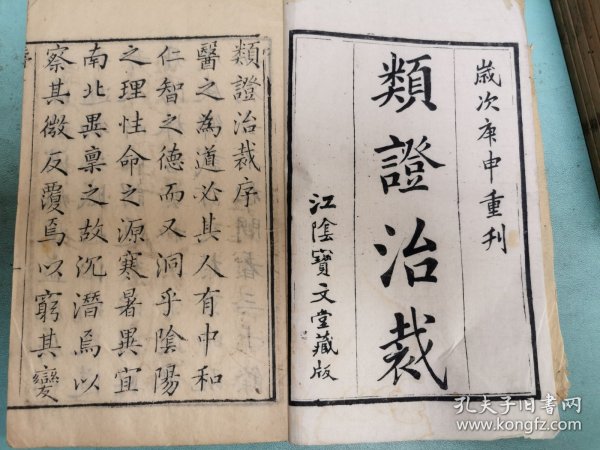 歲次庚申重刋
類證治裁
江陰寶文堂藏版
類證治裁序
醫之為道必其人有中和
仁智之德而又洞乎陰陽
之理性命之源寒暑異宜
南北異稟之故沉潛焉以
察其微反覆焉以窮其變
孔夫子旧书网
www.kongfz.com